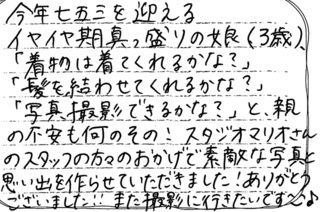 今年七五三を迎える
イヤイヤ期真っ盛りの娘(3歳)
「着物は着てくれるかな?」
「髪を結わせてくれるかな?」
「写真撮影できるかな?」と、親
の不安も何のその!スタジオマリオさん
のスタッフの方々のおかげで素敵な写真と
思い出を作らせていただきました!ありがとう
ございました!!また撮影に行きたいです〜♪